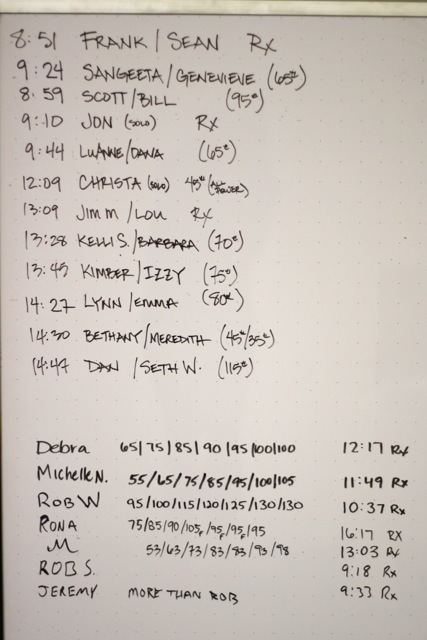 8:51 FRANK/SEAN Rx
9:24 SANGEETA/GENEVIEVE (65#)
8:59 SCOTT/BILL (95#)
9:10 JON (SOLO) Rx
9:44 LUANNE/DANA (65#)
12:09 CHRISTA (SOLO) 45# (ALL POWER)
13:09 JIM M/LOU Rx
13:28 KELLI S./BARBARA (70#)
13:45 KIMBER/IZZY (75#)
14:27 LYNN/EMMA (80#)
14:30 BETHANY/MEREDITH (45#/35#)
14:47 DAN/SETH W. (115#)
Debra 65/75/85/90/95/100/100 12:17 Rx
Michelle N. 55/65/75/85/95/100/105 11:49 Rx
ROB W 95/100/115/120/125/130/130 10:37 Rx
RONA 75/85/90/105F/95F/95F/95 16:17 RX
M 53/63/73/83/83/93/98 13:03 Rx
ROB S. 9:18 Rx
JEREMY MORE THAN ROB 9:33 Rx